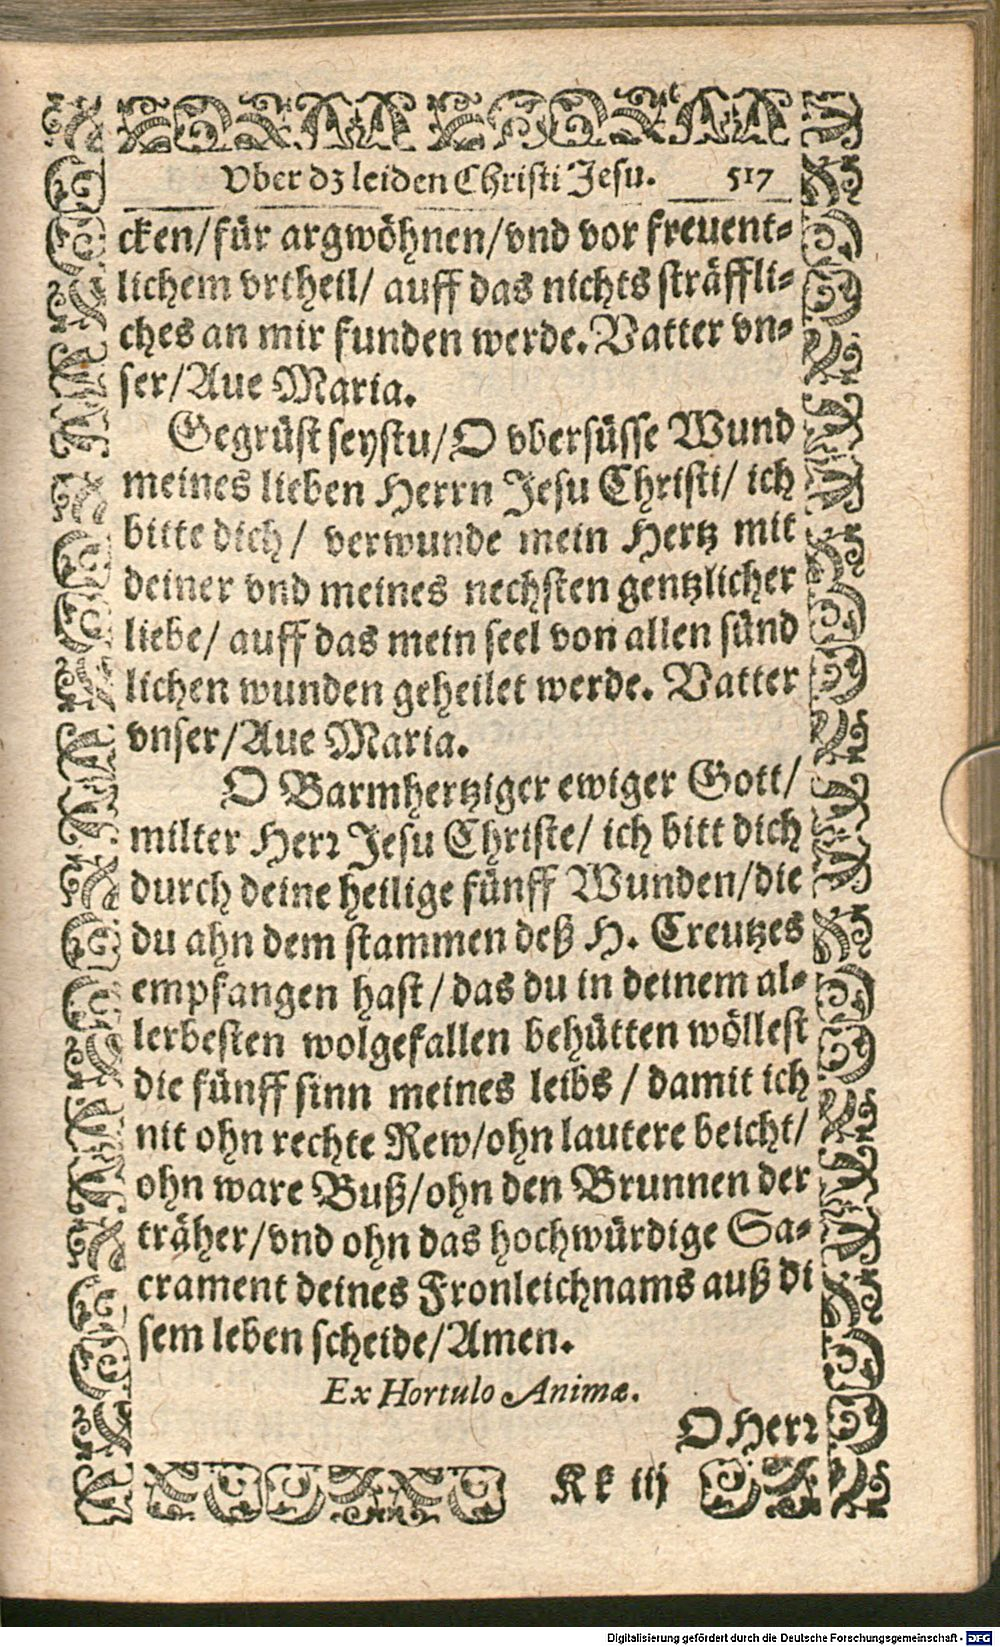 Vber dz leiden Christi Jesu. 517
cken/für argwöhnen/vnd vor freuent-
lichem vrtheil/ auff das nichts sträffli-
ches an mir funden werde. Vatter vn-
ser/Aue Maria.
Gegrüst seystu/O vbersüsse Wund
meines lieben Herrn Jesu Christi/ ich
bitte dich/ verwunde mein Hertz mit
deiner vnd meines nechsten gentzlicher
liebe/ auff das mein seel von allen sünd
lichen wunden geheilet werde. Vatter
vnser/Aue Maria.
O Barmhertziger ewiger Gott/
milter Herꝛ Jesu Christe/ ich bitt dich
durch deine heilige fünff Wunden/die
du ahn dem stammen deß H. Creutzes
empfangen hast/ das du in deinem al-
lerbesten wolgefallen behütten wöllest
die fünff sinn meines leibs / damit ich
nit ohn rechte Rew/ohn lautere beicht/
ohn ware Buß/ohn den Brunnen der
träher/vnd ohn das hochwürdige Sa-
crament deines Fronleichnams auß di
sem leben scheide/Amen.
Ex Hortulo Animæ.
O Herꝛ
Kk iij
Digitalisierung gefördert durch die Deutsche Forschungsgemeinschaft - DFG